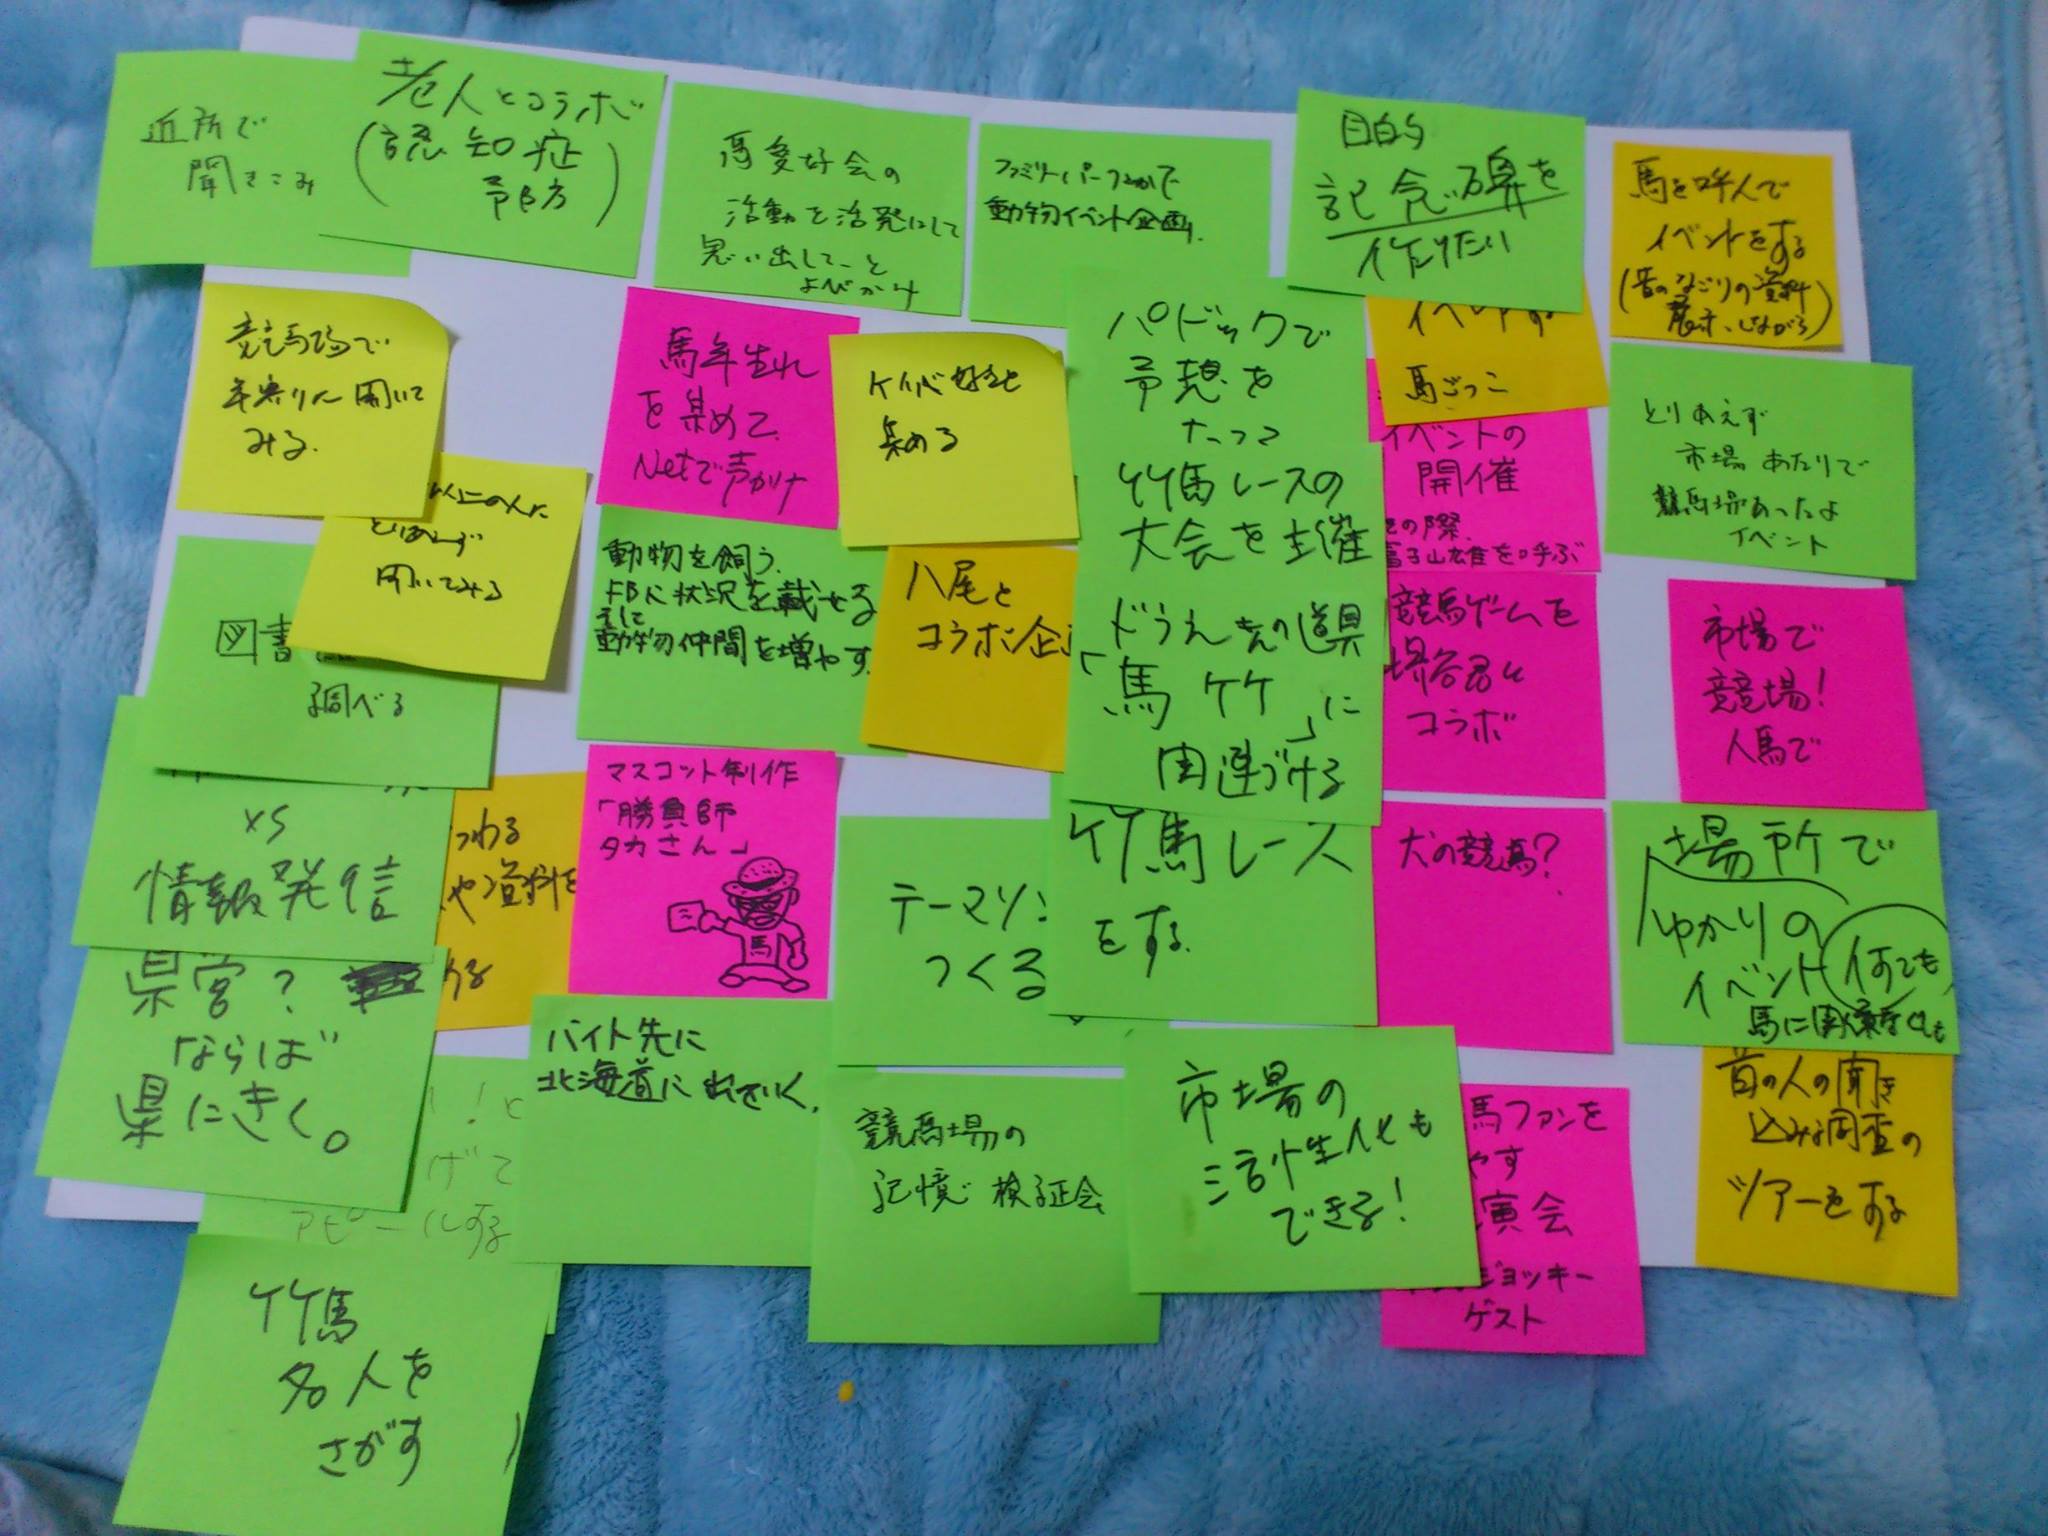 近所で
聞きこみ
老人とコラボ
(認知症
予防)
馬愛好会の
活動を活発にして
思い出してーと
よびかけ
ファミリーパークとかで
動物イベント企画
目的
記念碑を
作りたい
馬を呼んで
イベントをする
(昔のなごりの資料
展示しながら)
競馬場で
年寄りに聞いて
みる.
馬年生れ
を集めて
Netで声かけ
ケイバ好きを
集める
パドックで
予想を
たってる
イベントする
馬ごっこ
とりあえず
市場あたりで
競馬場あったよ
イベント
以上の人に
とりあえず
聞いてみる
図書
調べる
動物を飼う.
FBに状況を載せる
動物仲間を増やす.
八尾と
コラボ企
竹馬レースの
大会を主催
イベントの
開催
その際
富子山雄を呼ぶ
ドラえもんの道具
「馬竹」に
関連づける
競馬ゲームを
堺谷君と
コラボ
市場で
競場!
人馬で
xs
情報発信
つわる
や資料を
める
マスコット制作
「勝負師
タカさん」
馬
テーマソン
つくる
竹馬レース
をする.
犬の競馬?
場所で
ゆかりの
イベント
何でも
馬に関係なくても
県営?
「ならば」
県にきく。
!と
げて
アピールする
バイト先に
北海道に出ていく.
競馬場の
記憶 検証会
市場の
活性化も
できる!
馬ファンを
やす
演会
ジョッキー
ゲスト
昔の人の聞き
込み調査の
ツアーをする
竹馬
名人を
さがす